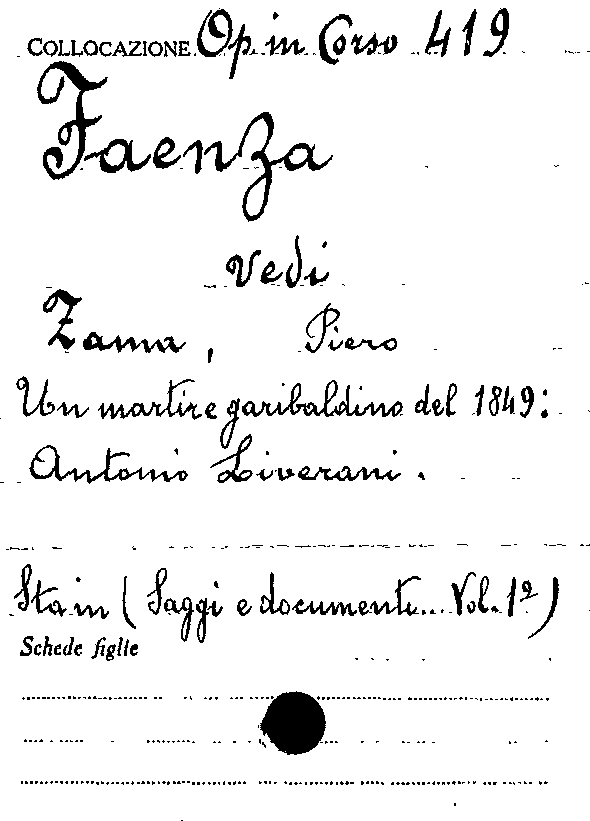 COLLOCAZIONE Op in Corso 419
Faenza
vedi
Zama, Piero
Un martire garibaldino del 1849:
Antonio Liverani.
Sta in (Saggi e documenti... Vol. 1º)
Schede figlie